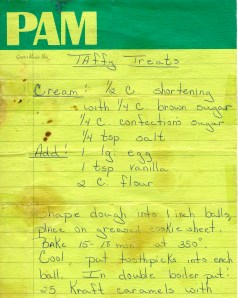 PAM
Taffy Treats
Cream: 1/2 C. shortening
with 1/4 C brown sugar
1/4 C. confection's sugar
1/4 tsp. salt
Add: 1 lg. egg
1 tsp vanilla
2 C. flour
Shape dough into 1 inch balls,
place on greased cookie sheet.
Bake 15-18 min at 350°
Cool, put toothpicks into each
ball. In double boiler put:
25 Kraft caramels with